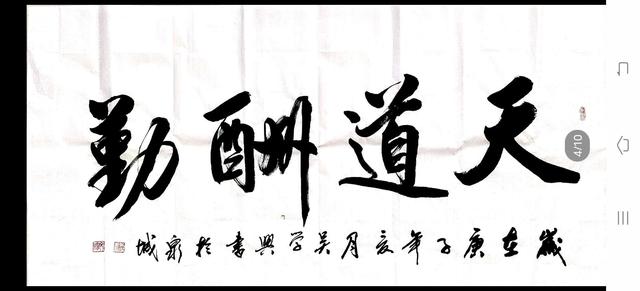 天道酬勤
歲在庚子年亥月吴学興書於泉城
4/10